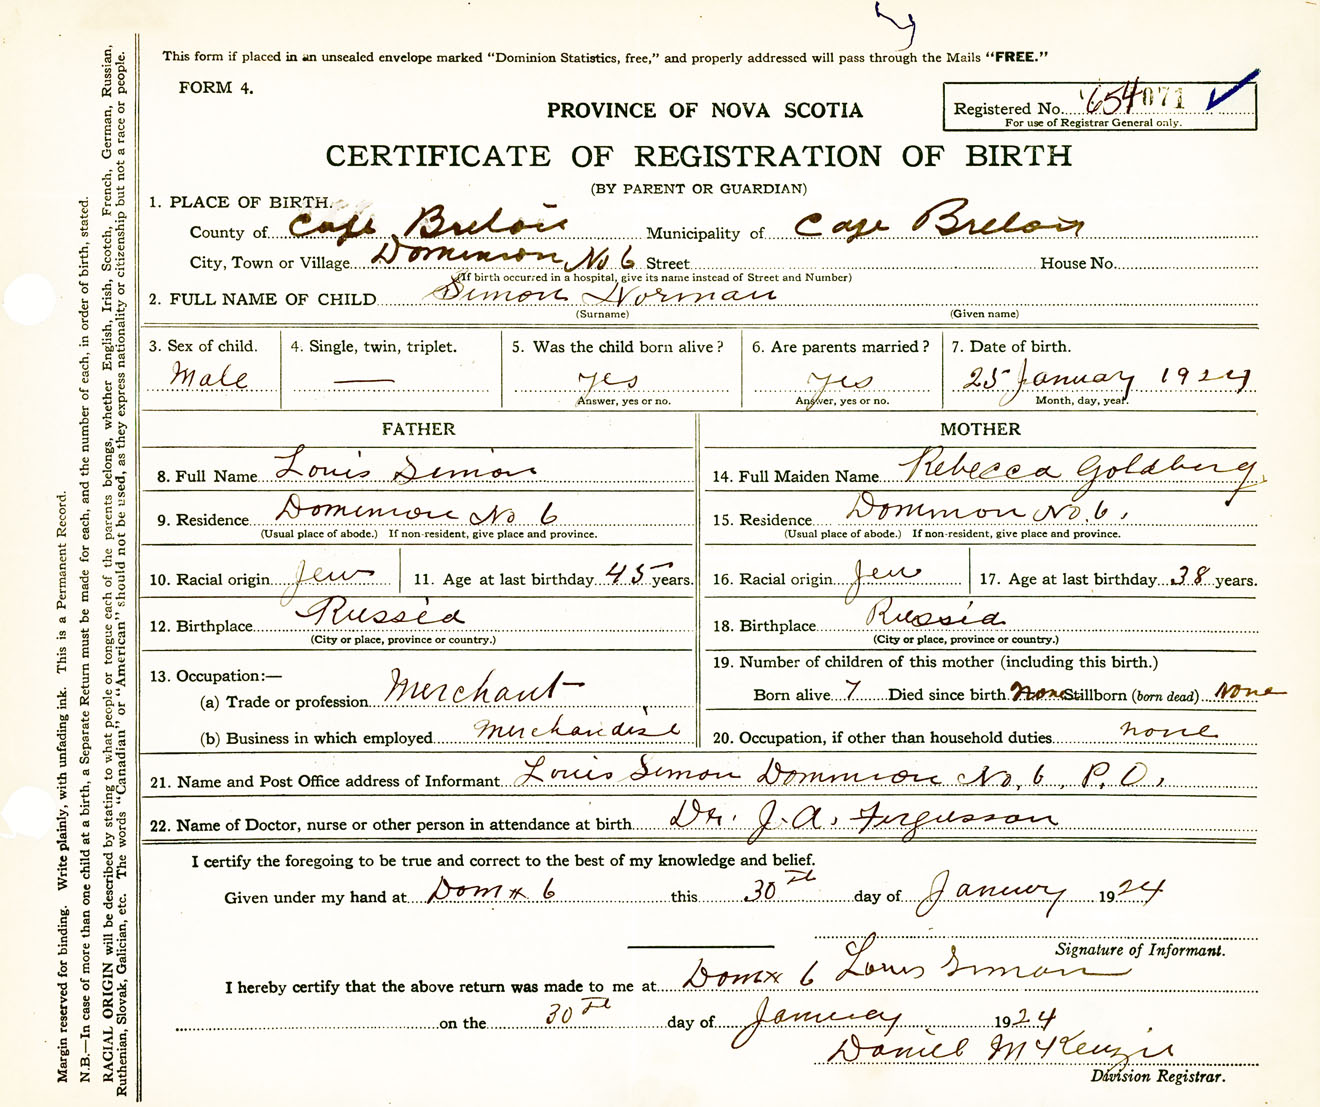 This form if placed in an unsealed envelope marked “Dominion Statistics, free,” and properly addressed will pass through the Mails “FREE.”
FORM 4.
PROVINCE OF NOVA SCOTIA
Registered No. 654 071
For use of Registrar General only.
CERTIFICATE OF REGISTRATION OF BIRTH
(BY PARENT OR GUARDIAN)
1. PLACE OF BIRTH.
County of Cape Breton Municipality of Cape Breton
City, Town or Village Dominion No 6 Street House No.
(If birth occurred in a hospital, give its name instead of Street and Number)
2. FULL NAME OF CHILD Simon Norman
(Surname) (Given name)
3. Sex of child. 4. Single, twin, triplet. 5. Was the child born alive? 6. Are parents married? 7. Date of birth.
Male — yes yes 25 January 1924
Answer, yes or no. Answer, yes or no. Month, day, year.
FATHER MOTHER
8. Full Name Louis Simon 14. Full Maiden Name Rebecca Goldberg.
9. Residence Dominion No 6 15. Residence Dominion No. 6.
(Usual place of abode.) If non-resident, give place and province. (Usual place of abode.) If non-resident, give place and province.
10. Racial origin Jew 11. Age at last birthday 45 years. 16. Racial origin Jew 17. Age at last birthday 38 years.
12. Birthplace Russia 18. Birthplace Russia
(City or place, province or country.) (City or place, province or country.)
13. Occupation:— 19. Number of children of this mother (including this birth.)
(a) Trade or profession Merchant Born alive 7 Died since birth None Stillborn (born dead) None
(b) Business in which employed Merchandise 20. Occupation, if other than household duties none
21. Name and Post Office address of Informant Louis Simon Dominion No. 6, P.O.
22. Name of Doctor, nurse or other person in attendance at birth Dr. J. A. Fergusson
I certify the foregoing to be true and correct to the best of my knowledge and belief.
Given under my hand at Dom # 6 this 30th day of January 1924
Signature of Informant.
Louis Simon
I hereby certify that the above return was made to me at Dom # 6
on the 30th day of January 1924
Daniel McKenzie
Division Registrar.
Margin reserved for binding. Write plainly, with unfading ink. This is a Permanent Record.
N.B.—In case of more than one child at a birth, a Separate Return must be made for each, and the number of each, in order of birth, stated.
RACIAL ORIGIN will be described by stating to what people or tongue each of the parents belongs, whether English, Irish, Scotch, French, German, Russian,
Ruthenian, Slovak, Galician, etc. The words “Canadian” or “American” should not be used, as they express nationality or citizenship but not a race or people.